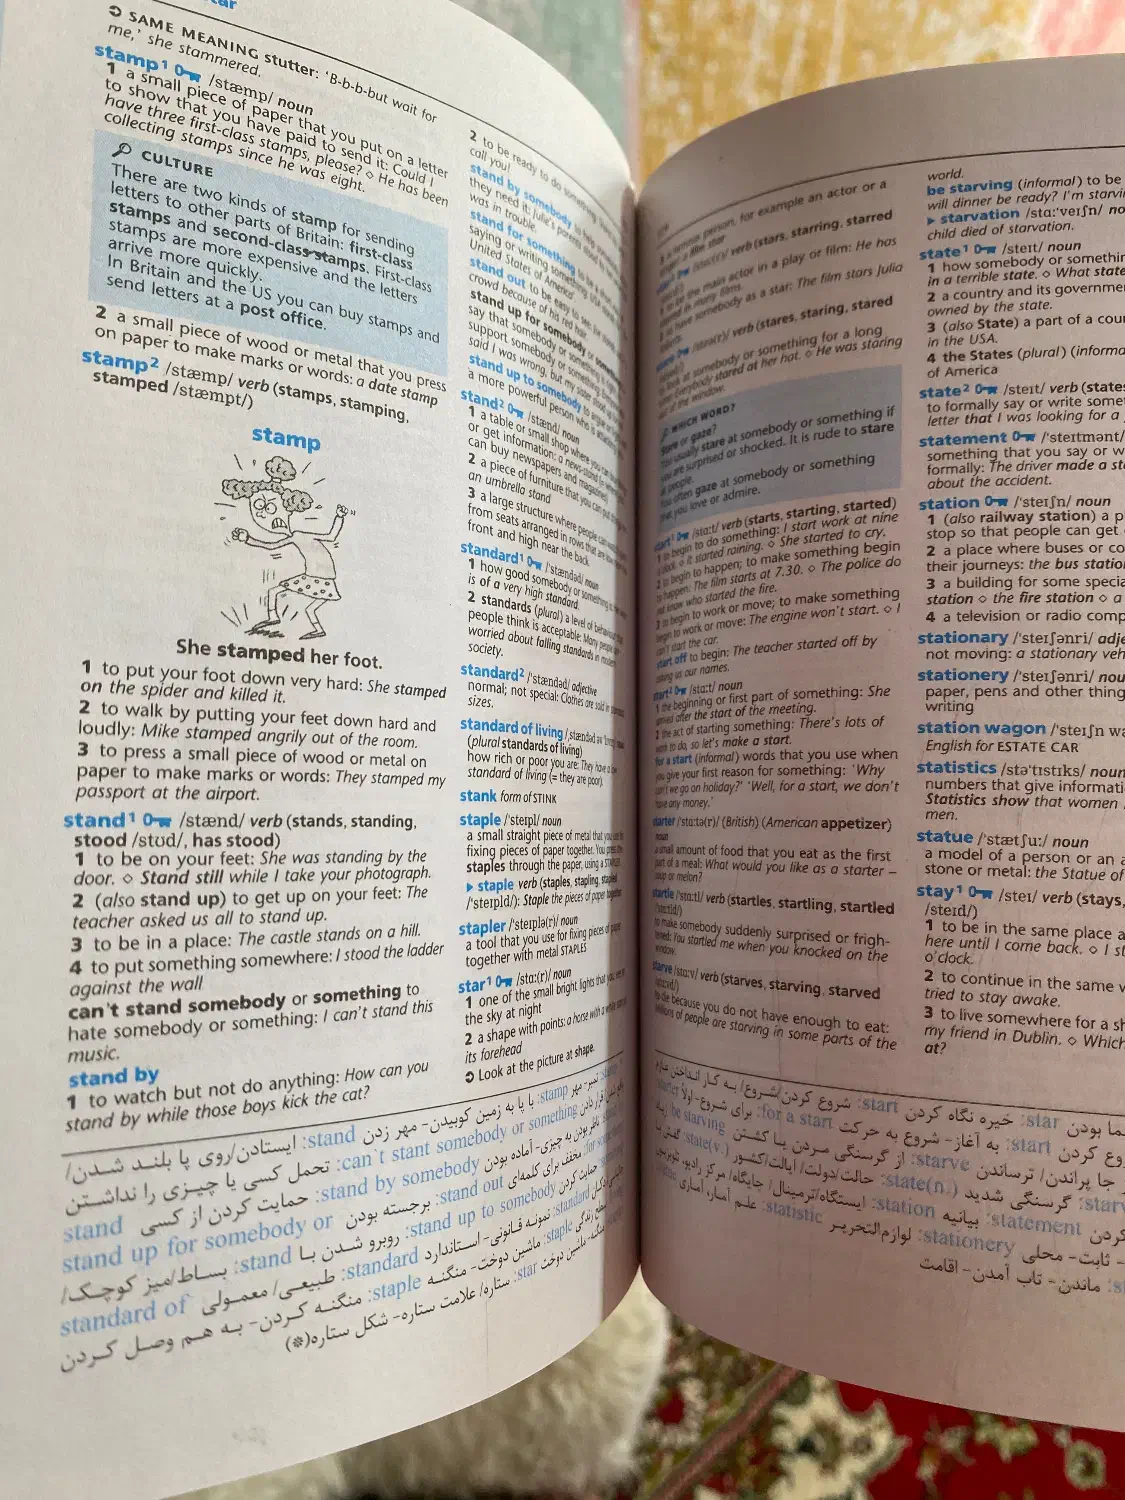 ➲ SAME MEANING stutter: 'B-b-b-but wait for
me,' she stammered.
stamp¹ /stæmp/ noun
1 a small piece of paper that you put on a letter
to show that you have paid to send it: Could I
have three first-class stamps, please? ◇ He has been
collecting stamps since he was eight.
CULTURE
There are two kinds of stamp for sending
letters to other parts of Britain: first-class
stamps and second-class stamps. First-class
stamps are more expensive and the letters
arrive more quickly.
In Britain and the US you can buy stamps and
send letters at a post office.
2 a small piece of wood or metal that you press
on paper to make marks or words: a date stamp
stamp² /stæmp/ verb (stamps, stamping,
stamped /stæmpt/)
stamp
She stamped her foot.
1 to put your foot down very hard: She stamped
on the spider and killed it.
2 to walk by putting your feet down hard and
loudly: Mike stamped angrily out of the room.
3 to press a small piece of wood or metal on
paper to make marks or words: They stamped my
passport at the airport.
stand¹ /stænd/ verb (stands, standing,
stood /stʊd/, has stood)
1 to be on your feet: She was standing by the
door. ◇ Stand still while I take your photograph.
2 (also stand up) to get up on your feet: The
teacher asked us all to stand up.
3 to be in a place: The castle stands on a hill.
4 to put something somewhere: I stood the ladder
against the wall
can't stand somebody or something to
hate somebody or something: I can't stand this
music.
stand by
1 to watch but not do anything: How can you
stand by while those boys kick the cat?
2 to be ready to do something
call you!
stand by somebody to help
they need it: Julie's parents
was in trouble.
stand for something to be a
saying or writing something
United States of America'.
stand out to be easy to see:
crowd because of his red hair.
stand up for somebody or something
say that somebody or something is
support somebody or something:
said I was wrong, but my sister stood up
stand up to somebody to
a more powerful person who is
stand² /stænd/ noun
1 a table or small shop where you can
or get information: a news-stand
can buy newspapers and magazines)
2 a piece of furniture that you can put
an umbrella stand
3 a large structure where people can
from seats arranged in rows that are low
front and high near the back
standard¹ /'stændəd/ noun
1 how good somebody or something is:
is of a very high standard.
2 standards (plural) a level of behaviour
people think is acceptable: Many people
worried about falling standards in modern
society.
standard² /'stændəd/ adjective
normal; not special: Clothes are sold in standard
sizes.
standard of living
(plural standards of living)
how rich or poor you are: They have a low
standard of living (= they are poor).
stank form of STINK
staple /'steɪpl/ noun
a small straight piece of metal that you use for
fixing pieces of paper together. You press the
staples through the paper, using a STAPLER.
▸ staple verb (staples, stapling, stapled
/'steɪpld/): Staple the pieces of paper together.
stapler /'steɪplə(r)/ noun
a tool that you use for fixing pieces of paper
together with metal STAPLES
star¹ /stɑː(r)/ noun
1 one of the small bright lights that you see in
the sky at night
2 a shape with points: a horse with a white star on
its forehead
➲ Look at the picture at shape.
stamp: تمبر- مهر stamp: با پا به زمین کوبیدن- مهر زدن stand: ایستادن/روی پا بلند شدن/
can't stant somebody or something: تحمل کسی یا چیزی را نداشتن
stand by somebody: حمایت کردن از کسی stand
stand out: برجسته بودن stand up for somebody or
stand up to somebody: روبرو شدن با stand: بساط/میز کوچک/
standard: نمونه قانونی- استاندارد standard: طبیعی/ معمولی standard of
staple: ماشین دوخت- منگنه staple: منگنه کردن- به هم وصل کردن
star: ستاره/ علامت ستاره- شکل ستاره(*)
person, for example an actor or a
verb (stars, starring, starred
the main actor in a play or film: He has
in many films.
somebody as a star: The film stars Julia
verb (stares, staring, stared
at somebody or something for a long
Everybody stared at her hat. ◇ He was staring
out of the window.
WHICH WORD?
Stare or gaze?
You usually stare at somebody or something if
you are surprised or shocked. It is rude to stare
at people.
You often gaze at somebody or something
that you love or admire.
start¹ /stɑːt/ verb (starts, starting, started)
1 to begin to do something: I start work at nine
o'clock. ◇ It started raining. ◇ She started to cry.
2 to begin to happen; to make something begin
to happen: The film starts at 7.30. ◇ The police do
not know who started the fire.
3 to begin to work or move; to make something
begin to work or move: The engine won't start. ◇ I
can't start the car.
start off to begin: The teacher started off by
asking us our names.
start² /stɑːt/ noun
1 the beginning or first part of something: She
arrived after the start of the meeting.
2 the act of starting something: There's lots of
work to do, so let's make a start.
for a start (informal) words that you use when
you give your first reason for something: 'Why
can't we go on holiday?' 'Well, for a start, we don't
have any money.'
starter /'stɑːtə(r)/ (British) (American appetizer)
noun
a small amount of food that you eat as the first
part of a meal: What would you like as a starter –
soup or melon?
startle /'stɑːtl/ verb (startles, startling, startled
/'stɑːtld/)
to make somebody suddenly surprised or frigh-
tened: You startled me when you knocked on the
window.
starve /stɑːv/ verb (starves, starving, starved
/stɑːvd/)
to die because you do not have enough to eat:
Millions of people are starving in some parts of the
world.
be starving (informal) to be
will dinner be ready? I'm starving
▸ starvation /stɑː'veɪʃn/ no
child died of starvation.
state¹ /steɪt/ noun
1 how somebody or somethin
in a terrible state. ◇ What state
2 a country and its governme
owned by the state.
3 (also State) a part of a cou
in the USA.
4 the States (plural) (informa
of America
state² /steɪt/ verb (states
to formally say or write some
letter that I was looking for a
statement /'steɪtmənt/
something that you say or w
formally: The driver made a st
about the accident.
station /'steɪʃn/ noun
1 (also railway station) a p
stop so that people can get
2 a place where buses or co
their journeys: the bus statio
3 a building for some specia
station ◇ the fire station ◇ a
4 a television or radio comp
stationary /'steɪʃənri/ adje
not moving: a stationary veh
stationery /'steɪʃənri/ nou
paper, pens and other thing
writing
station wagon /'steɪʃn wa
English for ESTATE CAR
statistics /stə'tɪstɪks/ noun
numbers that give informati
Statistics show that women
men.
statue /'stætʃuː/ noun
a model of a person or an a
stone or metal: the Statue of
stay¹ /steɪ/ verb (stays,
/steɪd/)
1 to be in the same place a
here until I come back. ◇ I st
o'clock.
2 to continue in the same w
tried to stay awake.
3 to live somewhere for a sh
my friend in Dublin. ◇ Which
at?
star: خیره نگاه کردن start: شروع کردن(شروع/ به کار انداختن
start: به آغاز- شروع به حرکت for a start: برای شروع- اولاً starter
جا پراندن/ ترساندن starve: از گرسنگی مردن be starving
گرسنگی شدید state(n.): حالت/دولت/ ایالت/کشور state(v.):
statement: بیانیه station: ایستگاه/ترمینال/ جایگاه/ مرکز رادیو، تلویزیون
ثابت- محلی stationery: لوازم‌التحریر statistic: علم آمار، آماری
ماندن- تاب آمدن- اقامت